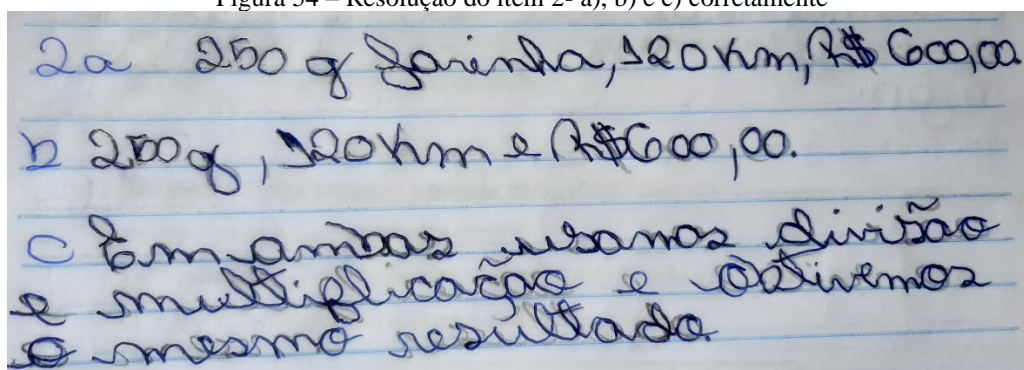 Figura 34 – Resolução do item 2- a), b) e c) corretamente
2a 250 g farinha, 120 Km, R$ 600,00
b 250g, 120 Km e R$600,00.
c Em ambas usamos divisão
e multiplicação e obtivemos
o mesmo resultado.